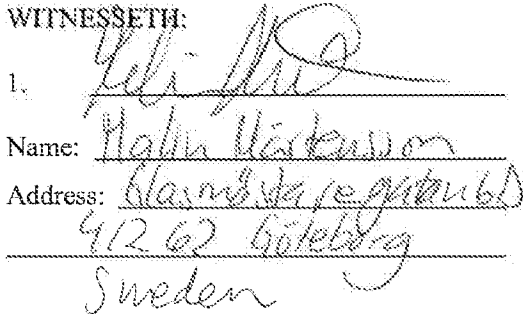 WITNESSETH:
1.
Name: Malin Mårtensson
Address: Glasmästaregatan 6D
412 62 Göteborg
Sweden